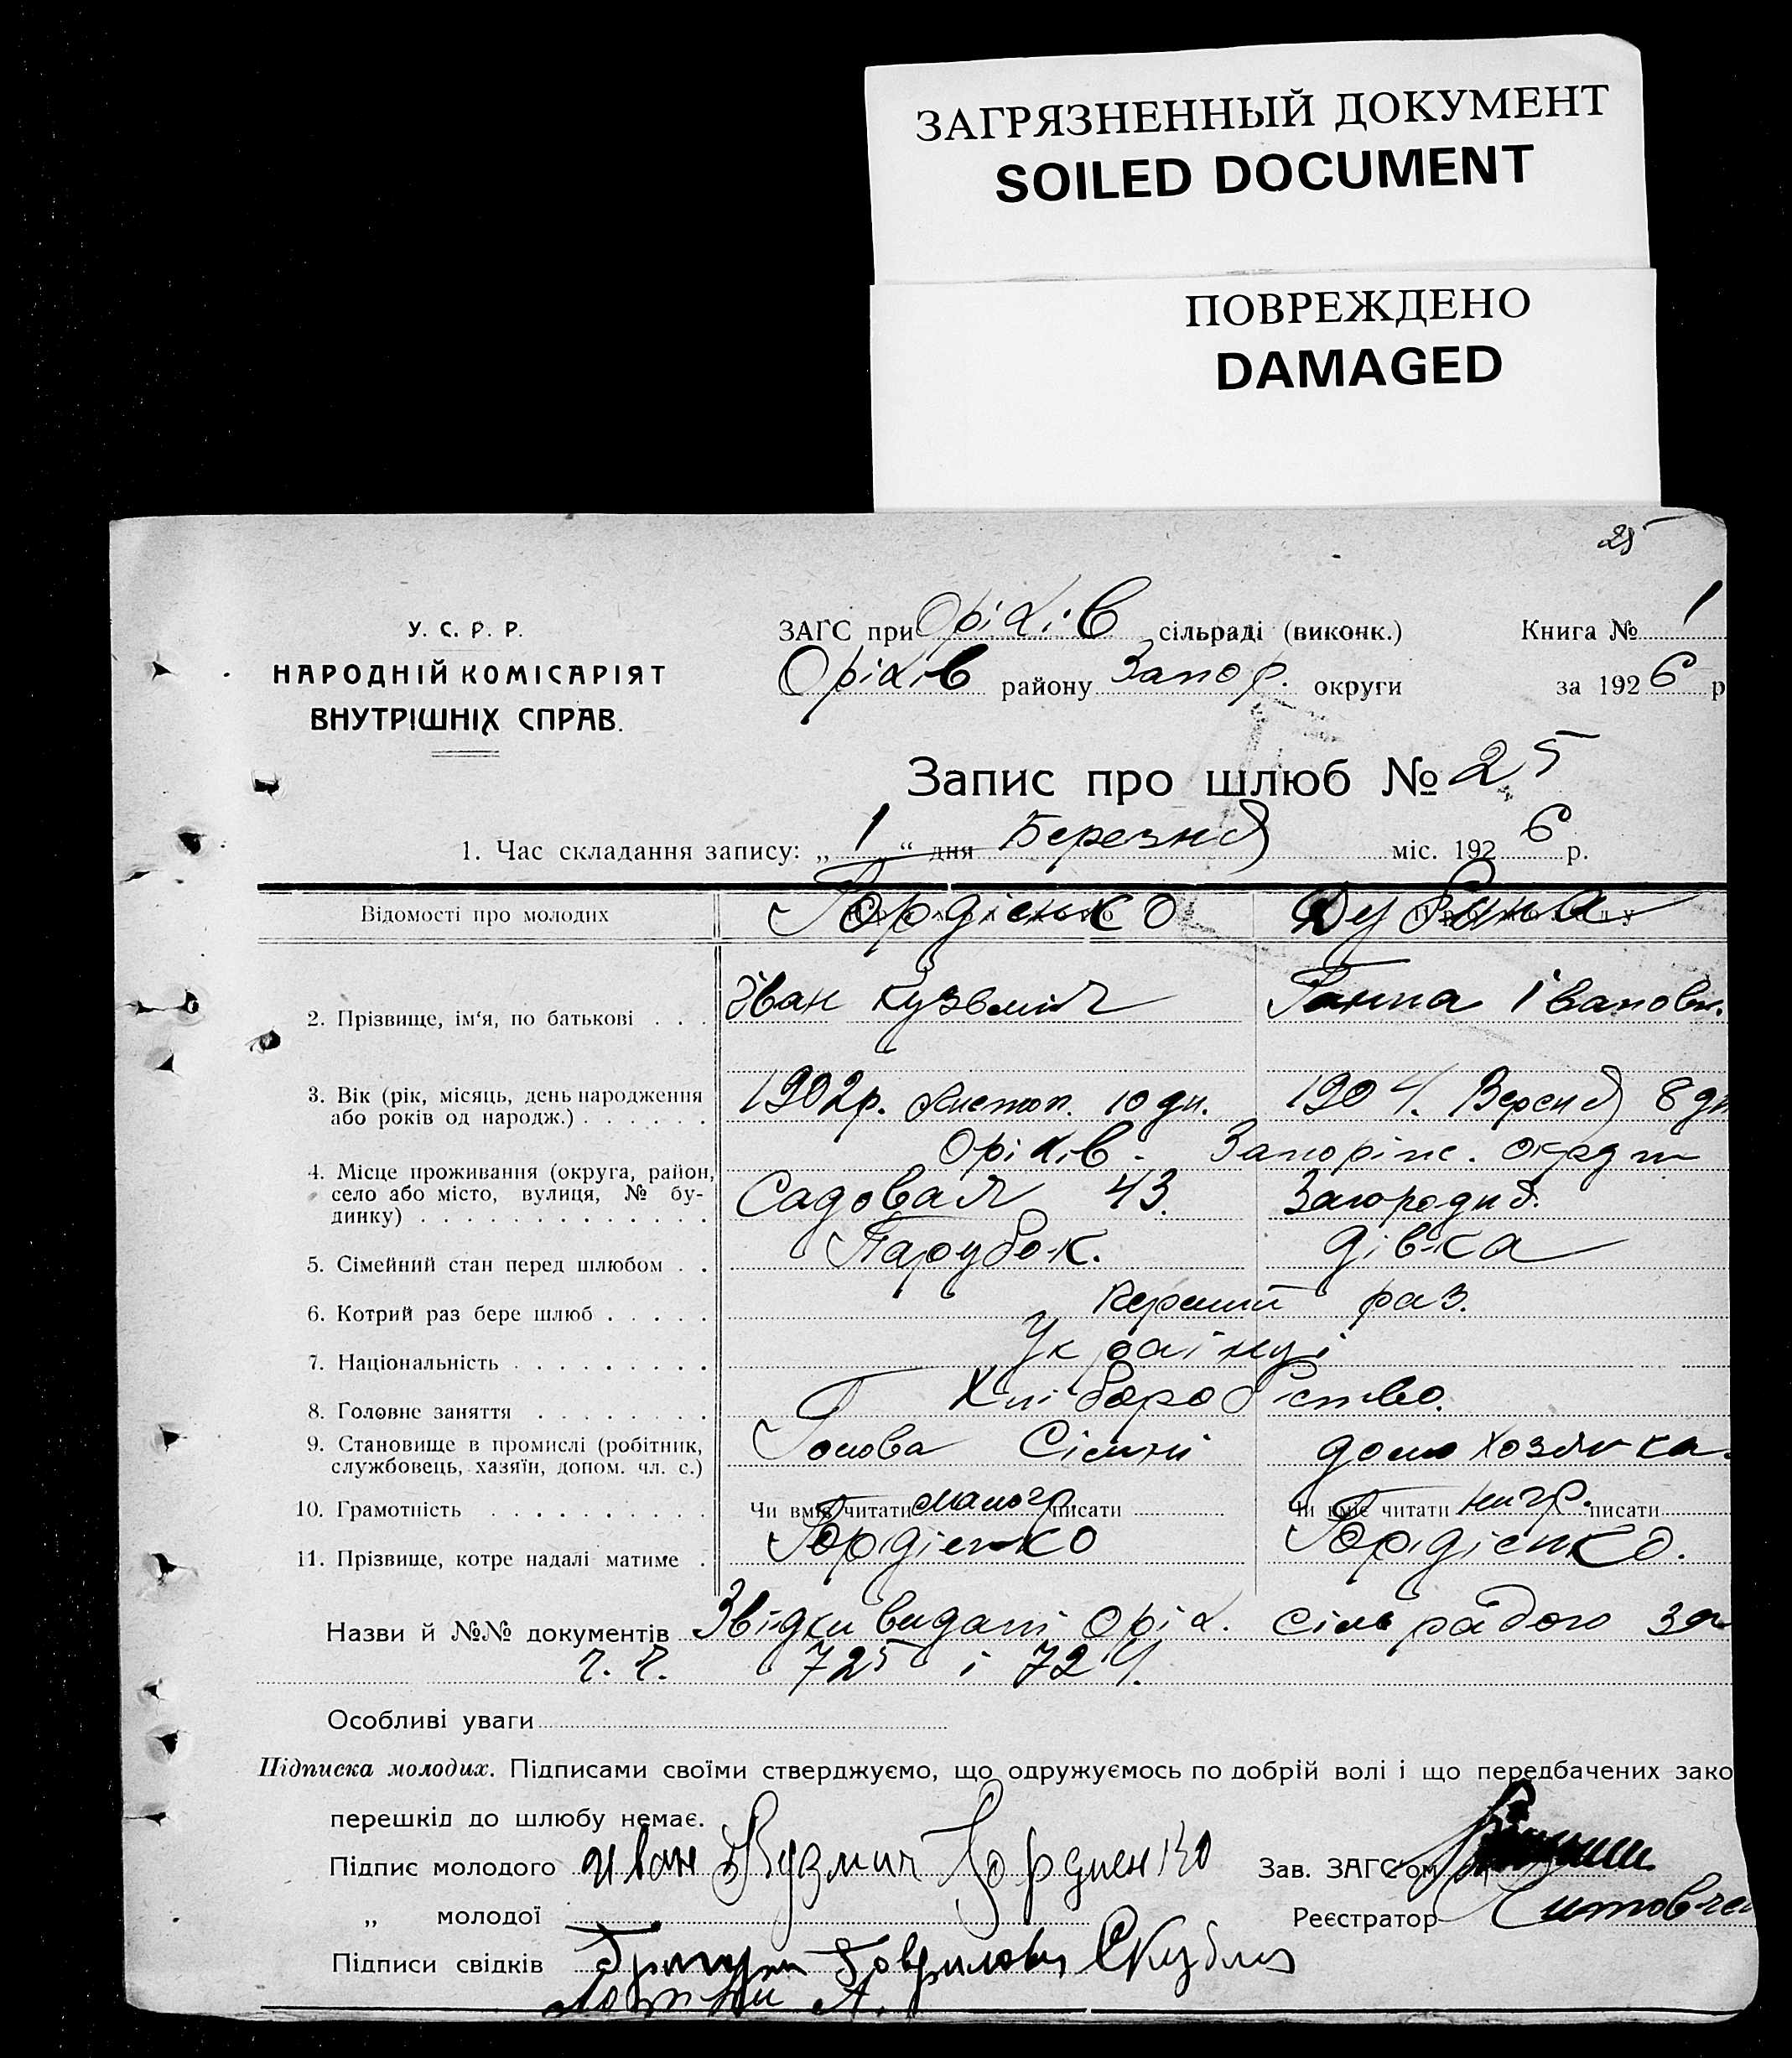 ЗАГРЯЗНЕННЫЙ ДОКУМЕНТ
SOILED DOCUMENT
ПОВРЕЖДЕНО
DAMAGED
25
У. С. Р. Р.
НАРОДНІЙ КОМІСАРІЯТ
ВНУТРІШНІХ СПРАВ.
ЗАГС при Оріхів сільраді (виконк.) Книга № 1
Оріхів району Запор. округи за 1926 р
Запис про шлюб № 25
1. Час складання запису: „ 1 “ дня Березня міс. 1926 р.
Відомості про молодих Гордієнко Дубина
2. Прізвище, ім‘я, по батькові . . . Іван Кузьмич Ганна Івановн.
3. Вік (рік, місяць, день народження 1902р. Листоп. 10 дн. 1904. Версня 8 дн
або років од народж.) . . . . . .
Оріхів - Запоріж. округи
4. Місце проживання (округа, район,
село або місто, вулиця, № бу- Садовая 43. Загородня.
динку) . . . . . . . . . . . . .
5. Сімейний стан перед шлюбом . . Парубок. дівка
6. Котрий раз бере шлюб . . . . . перший раз.
7. Національність . . . . . . . . . Українці
8. Головне заняття . . . . . . . . Хліборобство.
9. Становище в промислі (робітник, Голова Сімьї домохозяйка.
службовець, хазяїн, допом. чл. с.)
10. Грамотність . . . . . . . . . . Чи вміє читати малогр. писати Чи вміє читати нигр. писати
11. Прізвище, котре надалі матиме . Гордієнко Гордієнко.
Назви й №№ документів Звідки видані Оріх. Сільрадою за
ч. ч. 725 і 724.
Особливі уваги
Підписка молодих. Підписами своїми стверджуємо, що одружуємось по добрій волі і що передбачених зако
перешкід до шлюбу немає.
Підпис молодого Иван Кузмич Гордиенко Зав. ЗАГС'ом
„ молодої Реєстратор
Підписи свідків Григори Гаврилович Скубля